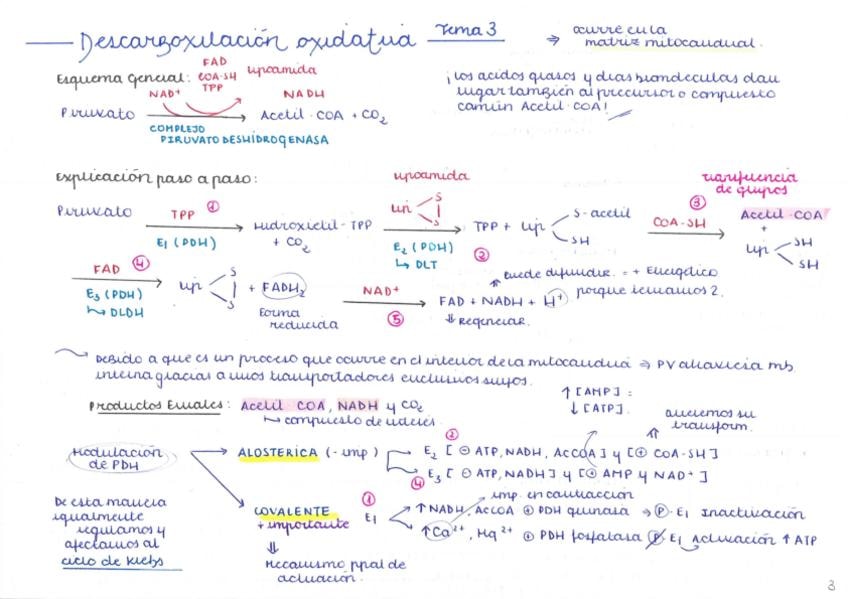 Descarboxilación oxidativa Tema 3
⇒ ocurre en la
matriz mitocondrial.
Esquema General:
FAD
COA-SH lipoamida
TPP
NAD+ NADH
Piruvato → Acetil·COA + CO2
COMPLEJO
PIRUVATO DESHIDROGENASA
¡Los acidos grasos y otras biomoleculas dan
lugar también al precursor o compuesto
común Acetil·COA!
Explicación paso a paso:
Piruvato TPP ① → Hidroxietil-TPP
E1 (PDH) + CO2
lipoamida
lip S S
E2 (PDH)
↳ DLT ②
TPP + lip S-acetil
SH
③ transferencia
de grupos
COA-SH → Acetil·COA
+
lip SH
SH
FAD ④ → lip S S + FADH2
E3 (PDH)
↳ DLDH
forma
reducida
NAD+ → FAD + NADH + H+
⑤ ⇓ Regenerar.
puede difundir. = + Energético
porque teníamos 2.
Debido a que es un proceso que ocurre en el interior de la mitocondria ⇒ PV atraviesa mb
interna gracias a unos transportadores exclusivos suyos.
Productos Finales: Acetil COA, NADH y CO2
↳ compuesto de
↑ [AMP] =
↓ [ATP].
queremos su
transform.
Modulación
de PDH
ALOSTERICA (- imp)
② E2 [ ⊖ ATP, NADH, ACCOA ] y [ ⊕ COA-SH ]
④ E3 [ ⊖ ATP, NADH ] y [ ⊕ AMP y NAD+ ]
imp. en contracción
COVALENTE
+ importante
① E1
↑ NADH, ACCOA ⊕ PDH quinasa ⇒ Ⓟ- E1 Inactivación
↑ Ca2+, Mg2+ ⊕ PDH fosfatasa Ⓟ E1 Activación ↑ ATP
⇓
Mecanismo ppal de
actuación.
De esta manera
igualmente
regulamos y
afectamos al
ciclo de Krebs
3